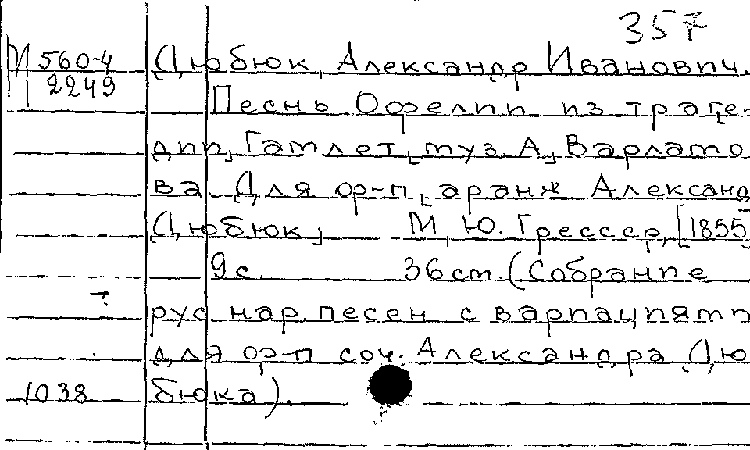 357
М 560-4
2249
Дюбюк, Александр Иванович.
Песнь Офелии из траге-
дии „Гамлет„ муз. А. Варламо
ва. Для ф-п. аранж. Александ
Дюбюк„ М., Ю. Грессер, [1855
9с. 36 см. (Собрание
рус. нар. песен с вариациями
для ф-п. соч. Александра Дю
1038 бюка).